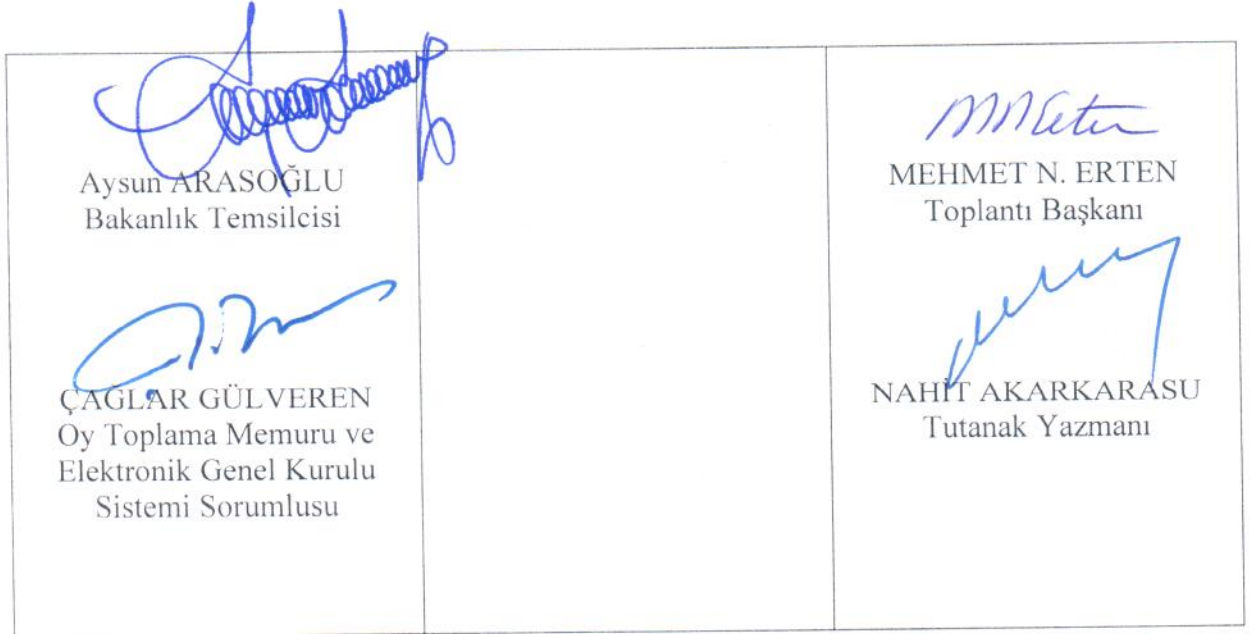 Aysun ARASOĞLU
Bakanlık Temsilcisi
ÇAĞLAR GÜLVEREN
Oy Toplama Memuru ve
Elektronik Genel Kurulu
Sistemi Sorumlusu
MNErten
MEHMET N. ERTEN
Toplantı Başkanı
NAHİT AKARKARASU
Tutanak Yazmanı